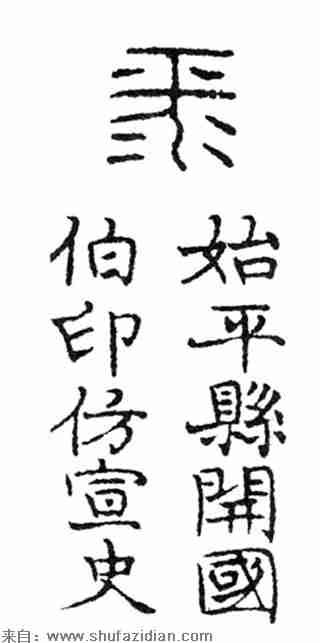 始平縣開國
伯印仿宣史
来自：www.shufazidian.com